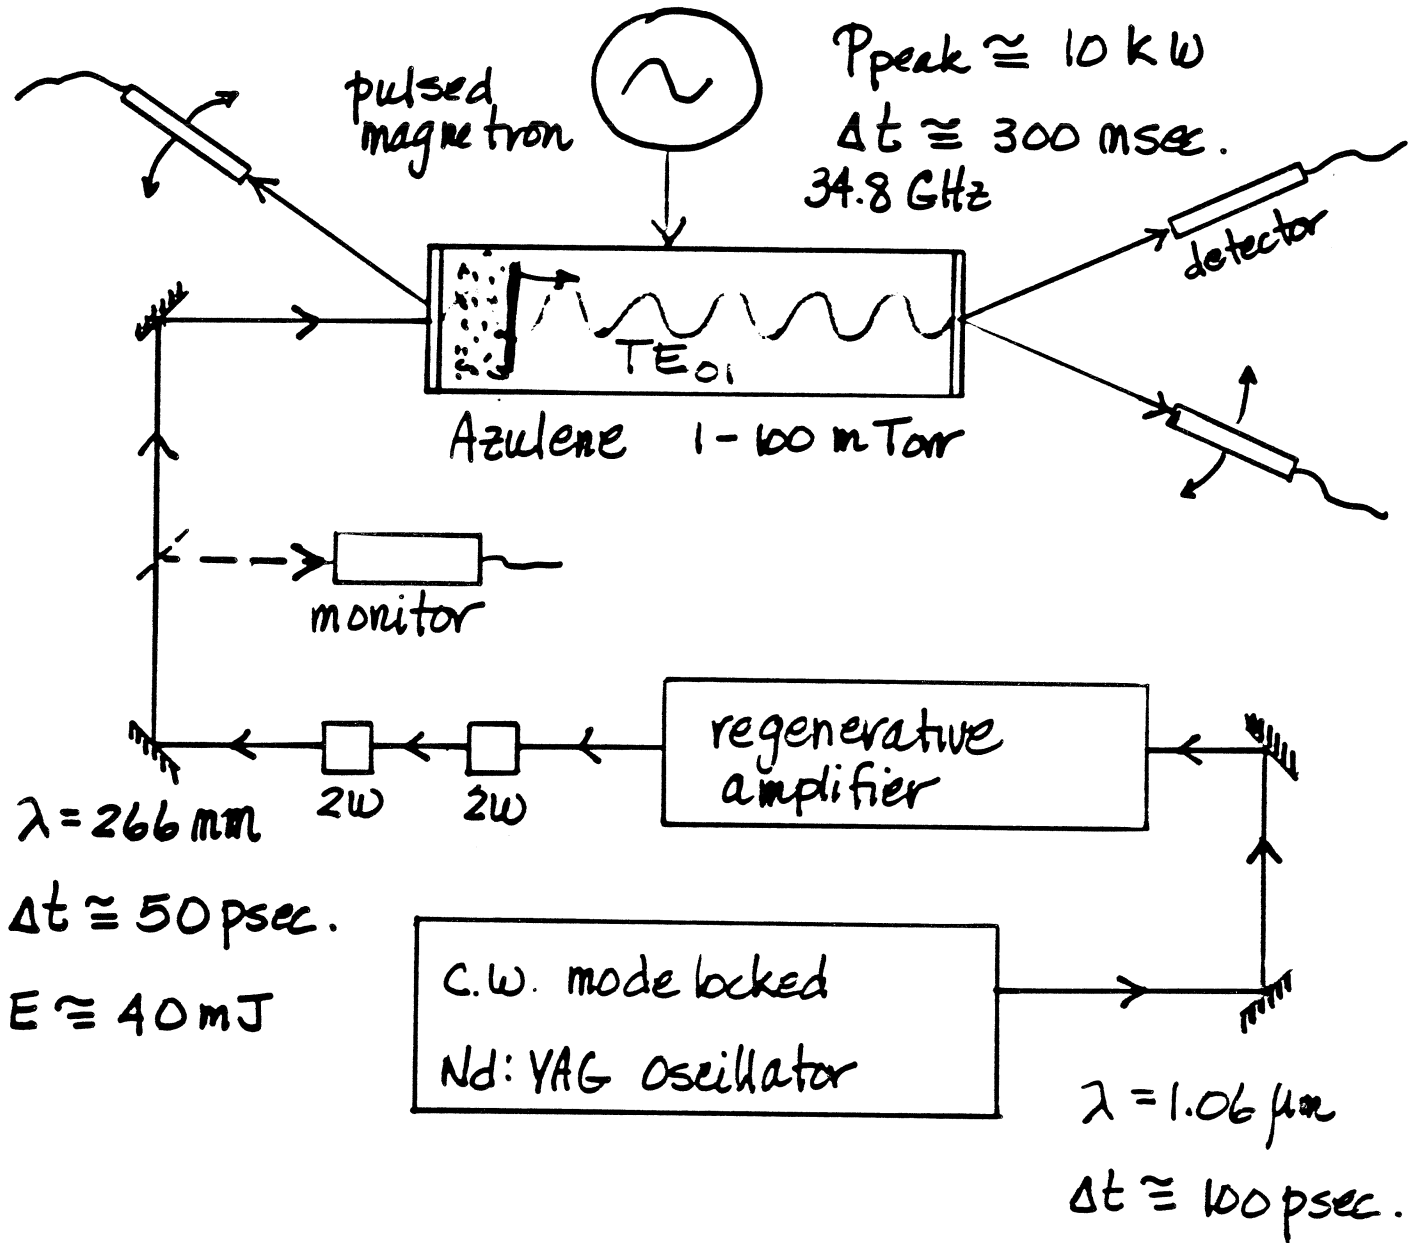 pulsed
magnetron
Ppeak ≅ 10 kW
Δt ≅ 300 nsec.
34.8 GHz
detector
TE01
Azulene 1-100 mTorr
monitor
regenerative
amplifier
2ω 2ω
λ = 266 nm
Δt ≅ 50 psec.
E ≅ 40 mJ
C.W. mode locked
Nd: YAG Oscillator
λ = 1.06 μm
Δt ≅ 100 psec.